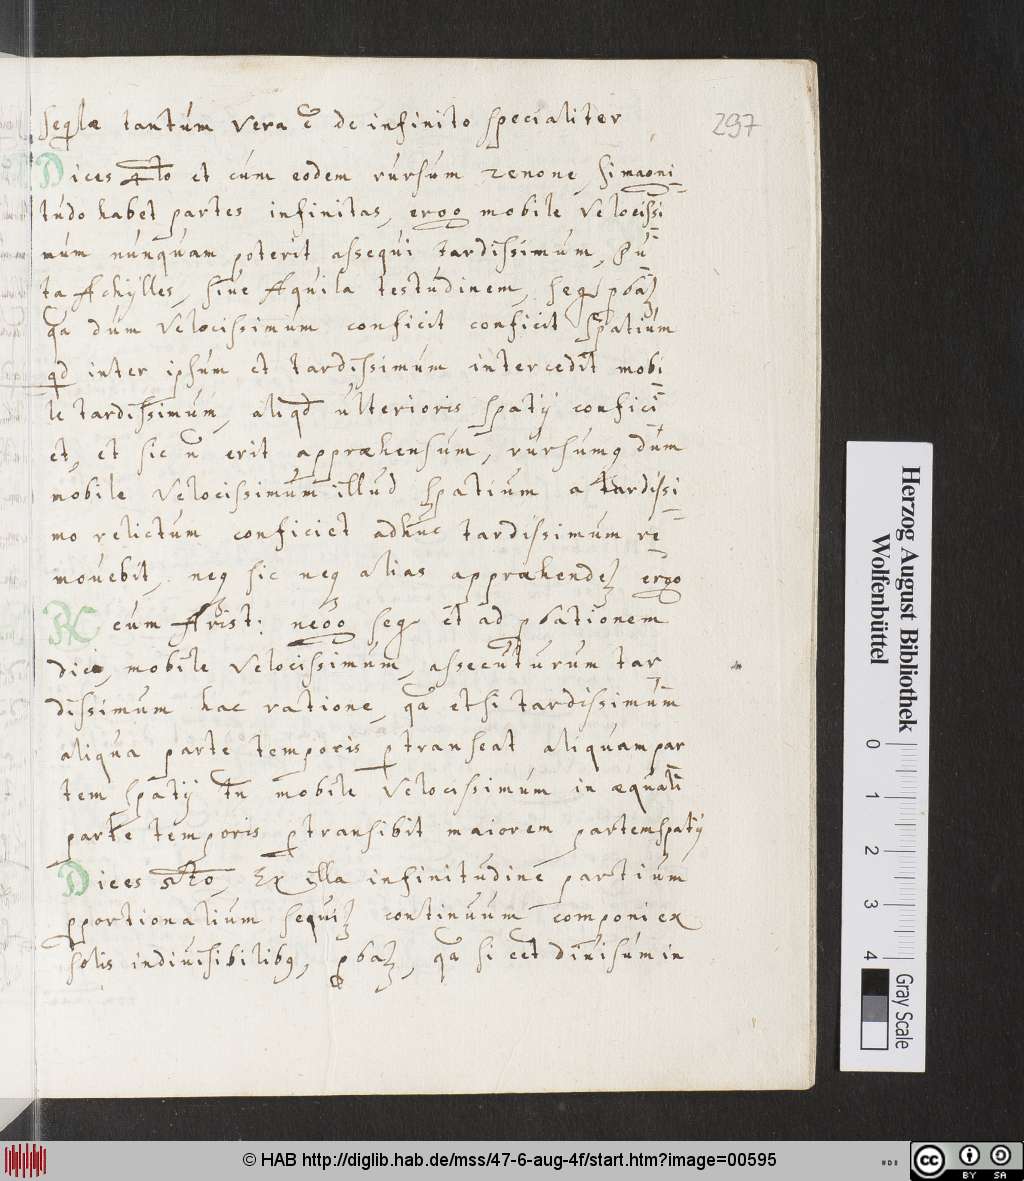 seq̃læ tantum vera ẽ de infinito specialiter
297
Dices 4to et cum eodem rursum zenone, si magni=
tudo habet partes infinitas, ergo mobile velocissi=
mum nunquam poterit assequi tardissimum, pu=
ta Achylles, siue Aquila testudinem, seq̃ p̃baʒ
q̃a dum velocissimum conficit conficit spatium
qd̃ inter ipsum et tardissimum intercedit mobi=
le tardissimum, aliqd̃ ulterioris spatij confici=
et, et sic ñ erit appræhensum, rursumq dum
mobile velocissimum illud spatium a tardissi=
mo relictum conficiet adhuc tardissimum re=
mouebit, neq sic neq alias appræhendeʒ ergo
R cum Arist: nego seq̃ et ad p̃bationem
dico, mobile velocissimum, assecuturum tar=
dissimum hac ratione, q̃a etsi tardissimum
aliqua parte temporis ptranseat aliquam par=
tem spatij tñ mobile velocissimum in æquali
parte temporis ptransibit maiorem partem spatij
Dices 5to, Ex illa infinitudine partium
pportionalium sequiʒ continuum componi ex
solis indiuisibilibq, pbaʒ, q̃a si eēt diuisum in
Herzog August Bibliothek
Wolfenbüttel
0 1 2 3 4
Gray Scale
© HAB http://diglib.hab.de/mss/47-6-aug-4f/start.htm?image=00595
cc BY SA